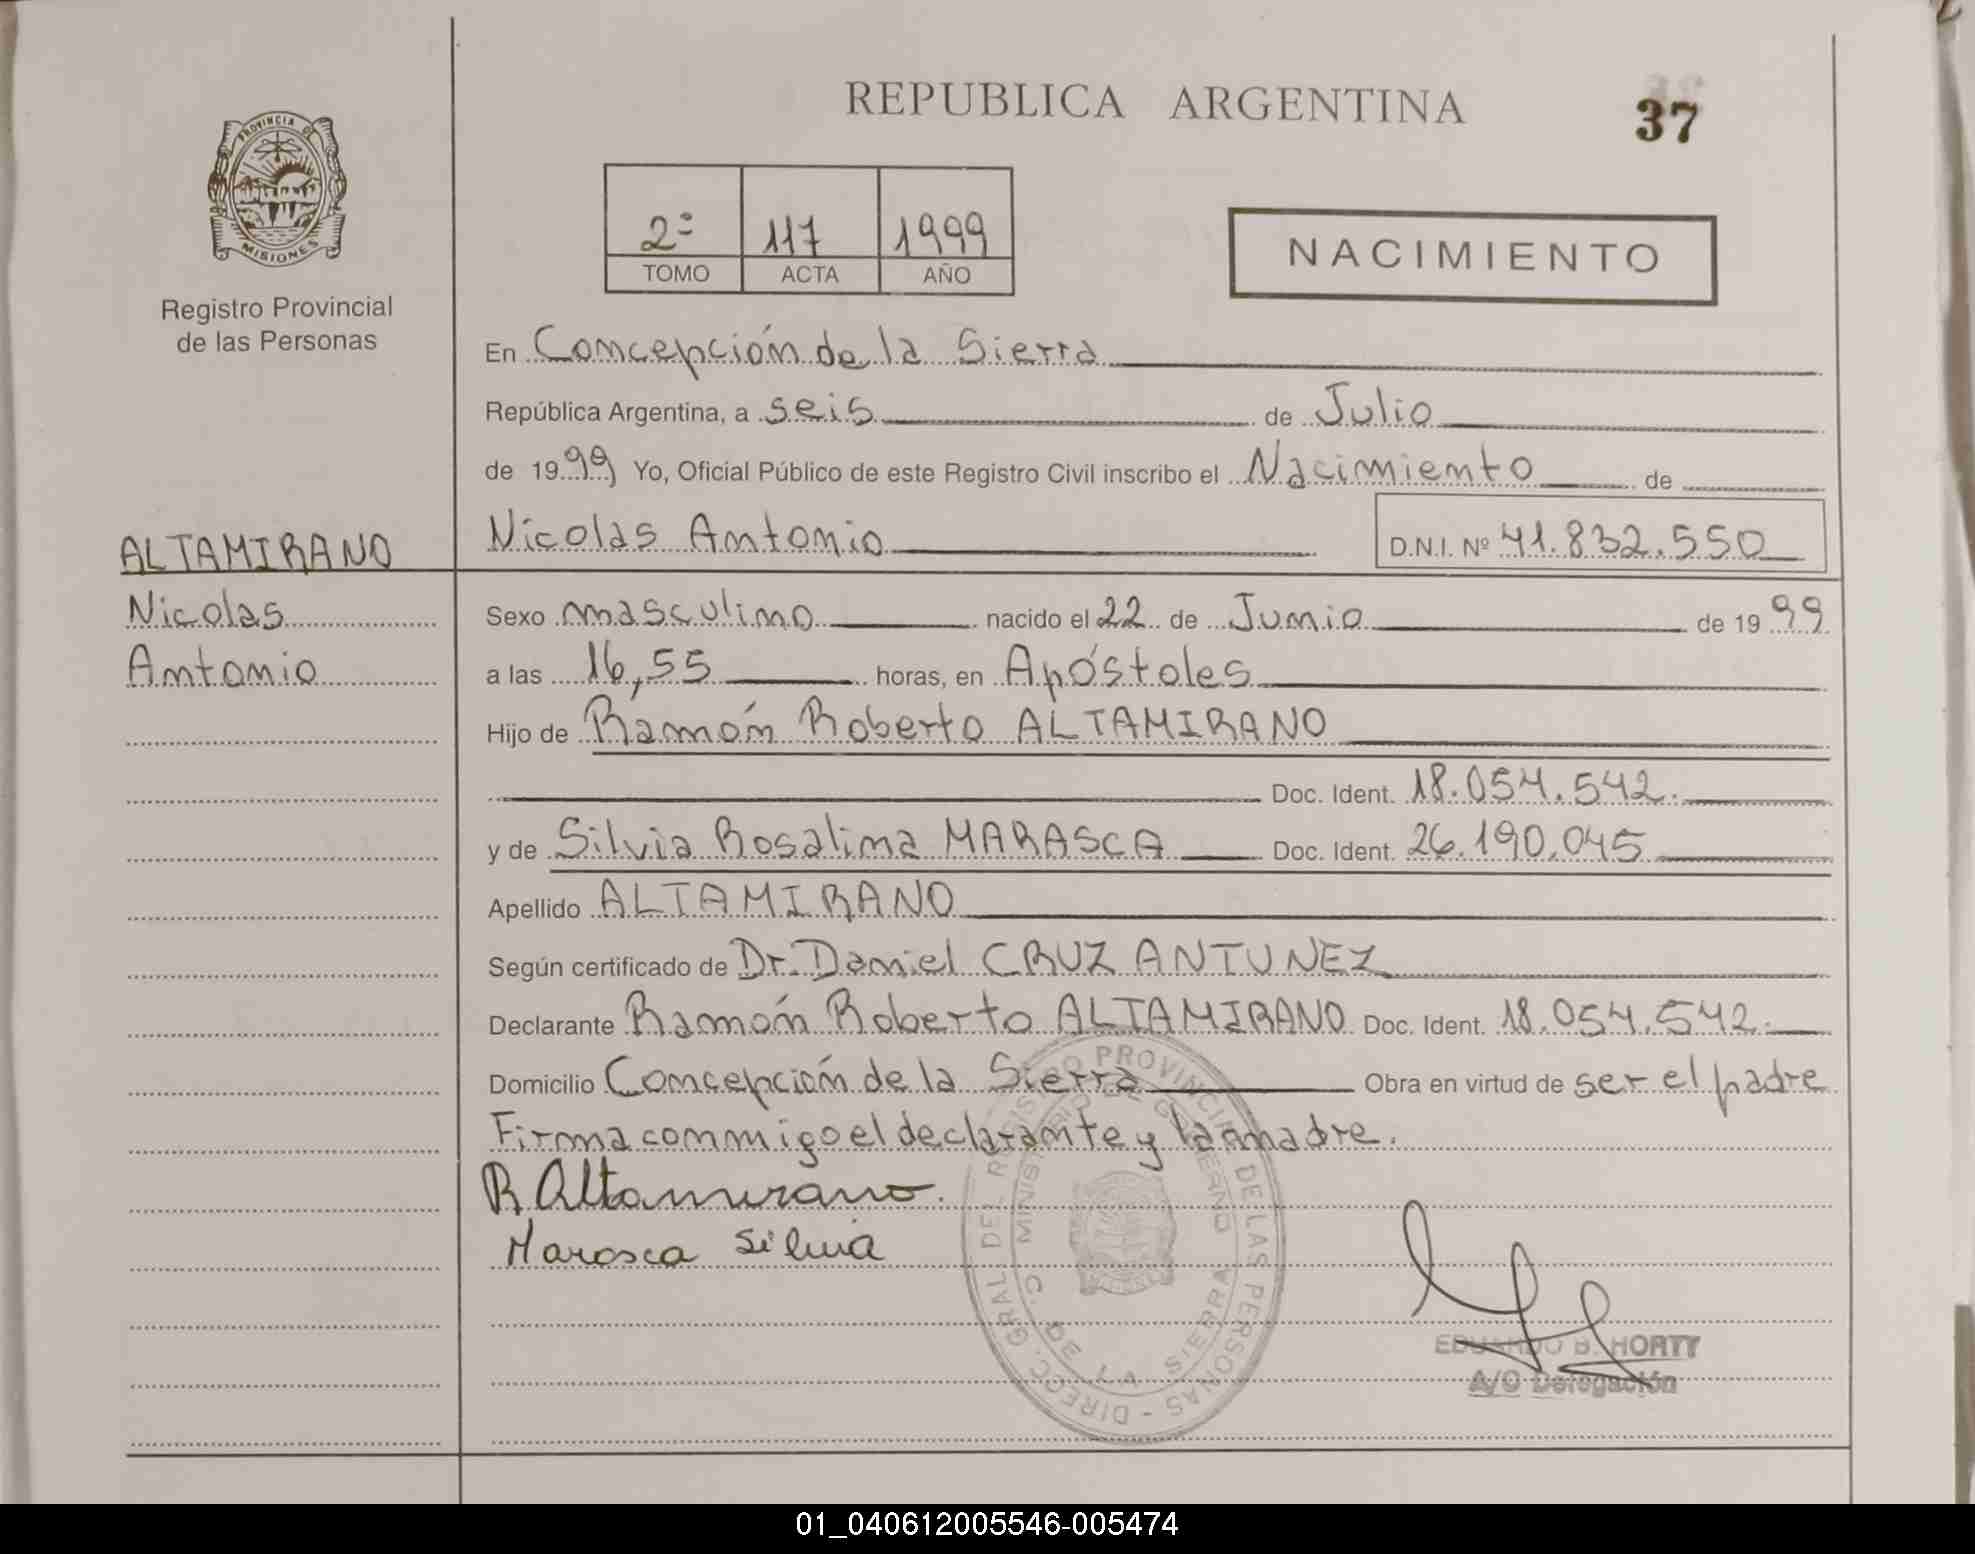 REPUBLICA ARGENTINA
37
PROVINCIA DE
MISIONES
Registro Provincial
de las Personas
2º 117 1999
TOMO ACTA AÑO
NACIMIENTO
En Concepción de la Sierra
República Argentina, a seis de Julio
de 1999 Yo, Oficial Público de este Registro Civil inscribo el Nacimiento de
ALTAMIRANO
Nicolas Antonio D.N.I. Nº 41.832.550
Nicolas
Antonio
Sexo masculino nacido el 22 de Junio de 1999
a las 16,55 horas, en Apóstoles
Hijo de Ramón Roberto ALTAMIRANO
Doc. Ident. 18.054.542.
y de Silvia Rosalina MARASCA Doc. Ident. 26.190.045
Apellido ALTAMIRANO
Según certificado de Dr. Daniel CRUZ ANTUNEZ
Declarante Ramón Roberto ALTAMIRANO Doc. Ident. 18.054.542.
Domicilio Concepción de la Sierra Obra en virtud de ser el padre
Firma conmigo el declarante y la madre.
R Altamirano.
Marasca Silvia
DIRECC. GRAL DEL REGISTRO PROVINCIAL DE LAS PERSONAS -
MINISTERIO DE GOBIERNO
C. DE LA SIERRA
EDUARDO B. HORTY
A/C Delegación
01_040612005546-005474